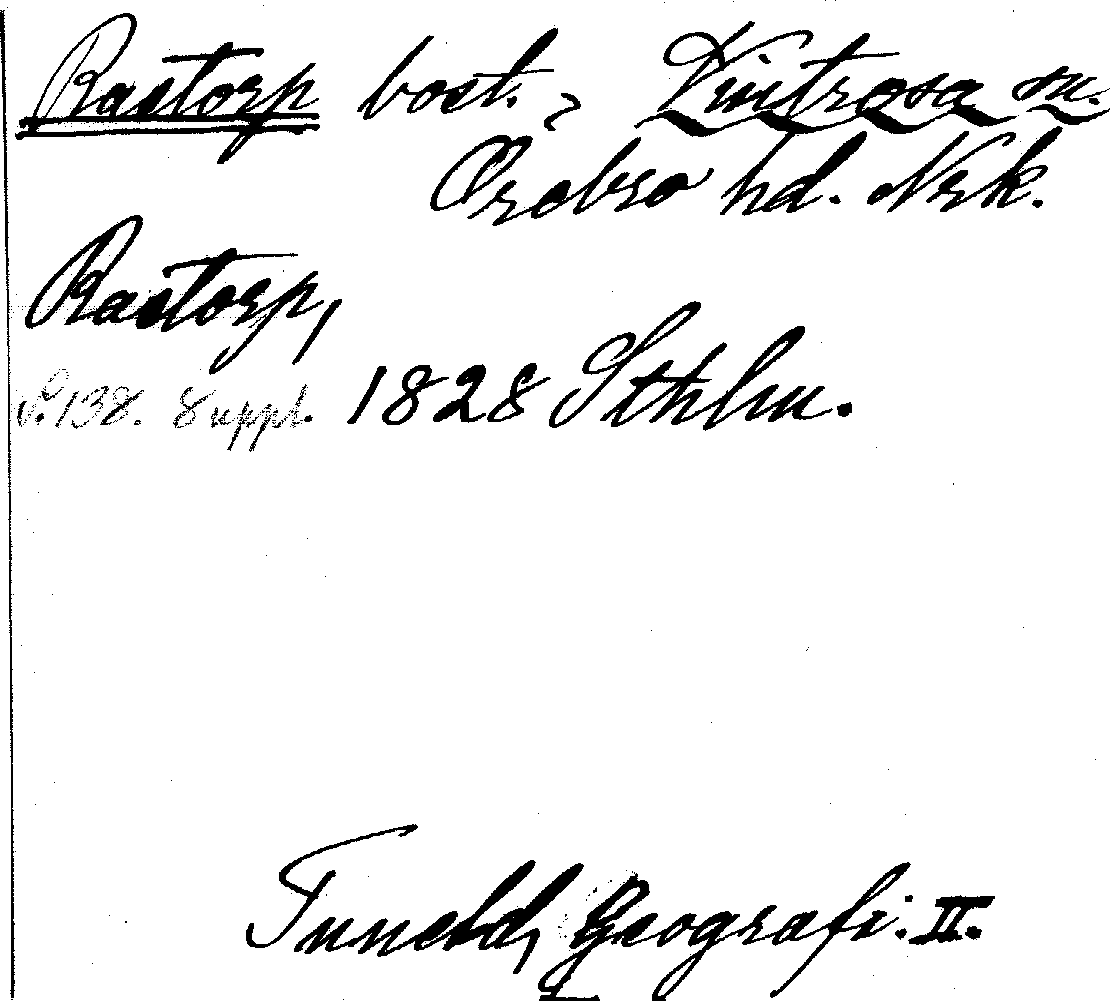 Rastorp bost., Vintrosa sn.
Örebro hd. Nrk.
Rastorp,
S. 138. Suppl. 1828 Sthlm.
Tuneld, Geografi. II.